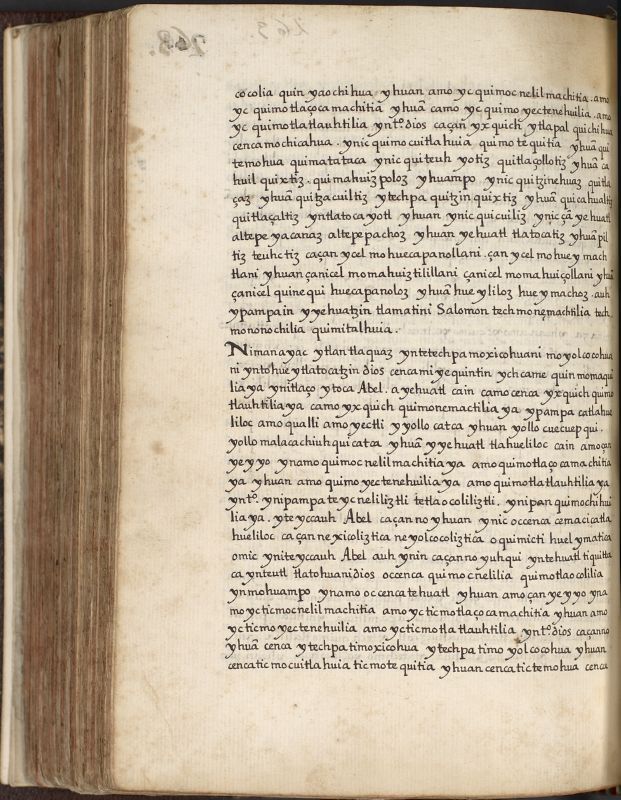 263.
268.
cocolia quin yaochihua, yhuan amo yc quimocnelilmachitia. amo
yc quimotlaçocamachitia yhuā camo yc quimoyectenehuilia. amo
yc quimotlatlauhtilia ynt.º dios caçañ yxquich ytlapal quichihua
cencamochicahua. ynic quimocuitlahuia quimotequitia yhuā qui
temohua quimatataca ynic quiteuh yotiz quitlaçollotiz yhuā ca
huil quixtiz. quimahuizpoloz yhuampo ynic quitzinehuaz quitla
çaz yhuā quitzacuiltiz ytechpa quitzinquixtiz yhuā quicahualtiz
quitlaçaltiz yntlatocayotl yhuan ynic quicuiliz ynic çā yehuatl
altepe yacanaz altepepachoz yhuan yehuatl tlatocatiz yhuā pil
tiz teuhctiz caçan ycel mohuecapanollani. çan ycel mohueymach
tlani yhuan çanicel momahuiztilillani çanicel momahuiçollani yhuā
çanicel quinequi huecapanoloz yhuā hueyliloz hueymachoz. auh
ypampa in yyehuatzin tlamatini Salomon techmonemachtilia tech
mononochilia quimitalhuia.
Niman ayac ytlan tlaquaz yntetechpa moxicohuani moyolcocohua
ni ynto hueytlatocatzin dios cenca miyequintin ychcame quinmomaqui
liaya ynitlaço ytoca Abel. ayehuatl cain camo cenca yxquich quimo
tlauhtiliaya camo yxquich quimonemactiliaya ypampa catlahue
liloc amo qualli amo yectli yyollo catca yhuan yollo cuecuepqui.
yollo malacachiuhqui catca yhuā yyehuatl tlahueliloc cain amo çan
yeyyo ynamo quimocnelilmachitiaya amo quimotlaçocamachitia
ya yhuan amo quimoyectenehuiliaya amo quimotlatlauhtiliaya
ynt.º ynipampa teycneliliztli tetlaocoliliztli. ynipan quimochihui
liaya. yteyccauh Abel caçanno yhuan ynic occenca cemacicatla
hueliloc caçan nexicoliztica neyolcocoliztica oquimicti huel ymatica
omic yniteyccauh Abel auh ynin caçanno yuhqui yntehuatl tiquitta
ca ynteutl tlatohuani dios occenca quimocnelilia quimotlaocolilia
ynmohuampo ynamo occenca tehuatl yhuan amo çan yeyyo yna
mo yc ticmocnelilmachitia amo yc ticmotlaçocamachitia yhuan amo
yc ticmoyectenehuilia amo yc ticmotlatlauhtilia ynt.º dios caçanno
yhuā cenca ytechpa timoxicohua ytechpa timoyolcocohua yhuan
cenca ticmocuitlahuia ticmotequitia yhuan cenca tictemohua cenca